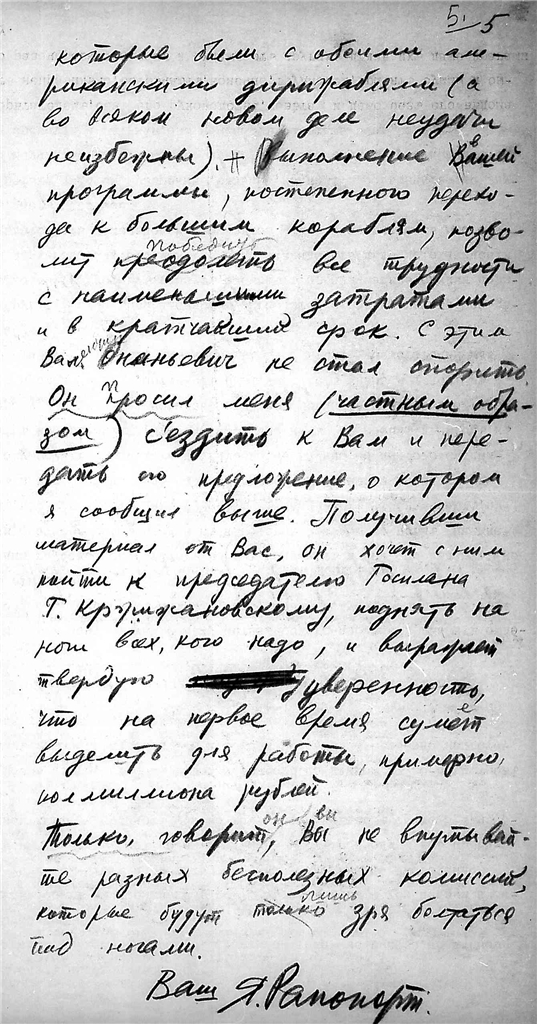 5. 5
которые были с обоими аме-
риканскими дирижаблями (а
во всяком новом деле неудачи
неизбежны). # Выполнение Вашей
программы, постепенного перехо-
да к большим кораблям, позво-
победить
лит преодолеть все трудности
с наименьшими затратами
и в кратчайший срок. С этим
Ананьевич не стал спорить.
Он просил меня (частным обра-
зом) съездить к Вам и пере-
дать его предложение, о котором
я сообщил выше. Получивши
материал от Вас, он хочет с ним
пойти к председателю Госплана
Г. Кржижановскому, поднять на
ноги всех, кого надо, и выражает
твердую уверенность,
что на первое время сумеет
выделить для работы, примерно,
полмиллиона рублей.
он вы
Только, говорит, Вы не впутывай-
те разных бесполезных комиссий,
лишь
которые будут только зря болтаться
под ногами.
Ваш Я. Рапопорт.